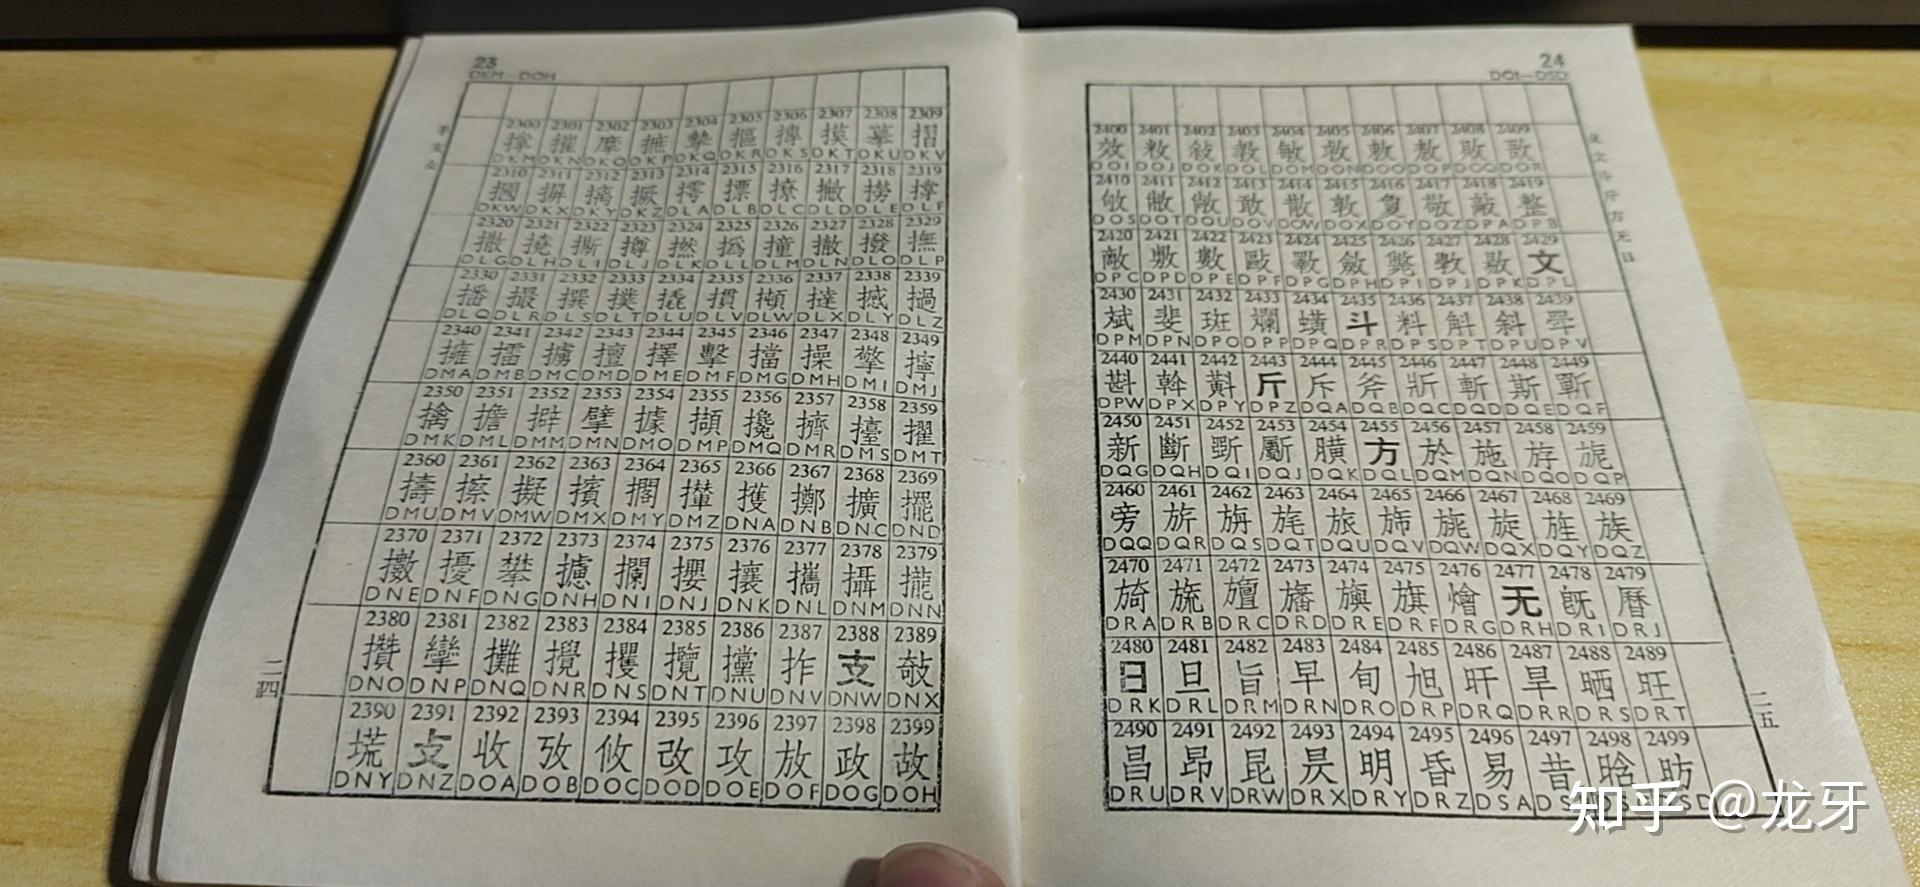 23
DKM—DOH
2300 2301 2302 2303 2304 2305 2306 2307 2308 2309
撑 摧 摩 摭 摯 摳 摶 摸 摹 摺
DKM DKN DKO DKP DKQ DKR DKS DKT DKU DKV
2310 2311 2312 2313 2314 2315 2316 2317 2318 2319
摑 摒 摛 撅 摽 撩 撇 撈 撐
DKW DKX DKY DKZ DLA DLB DLC DLD DLE DLF
2320 2321 2322 2323 2324 2325 2326 2327 2328 2329
撒 撓 撕 撙 撚 撝 撞 撤 撥 撫
DLG DLH DLI DLJ DLK DLL DLM DLN DLO DLP
2330 2331 2332 2333 2334 2335 2336 2337 2338 2339
播 撮 撰 撲 撬 摜 撻 撼 撾
DLQ DLR DLS DLT DLU DLV DLW DLX DLY DLZ
2340 2341 2342 2343 2344 2345 2346 2347 2348 2349
擁 擂 擄 擅 擇 擊 擋 操 擎 擰
DMA DMB DMC DMD DME DMF DMG DMH DMI DMJ
2350 2351 2352 2353 2354 2355 2356 2357 2358 2359
擒 擔 擗 擘 據 擷 攙 擠 擡 擢
DMK DML DMM DMN DMO DMP DMQ DMR DMS DMT
2360 2361 2362 2363 2364 2365 2366 2367 2368 2369
擣 擦 擬 擯 擱 攆 擭 擲 擴 擺
DMU DMV DMW DMX DMY DMZ DNA DNB DNC DND
2370 2371 2372 2373 2374 2375 2376 2377 2378 2379
擻 擾 攀 攄 攔 攖 攘 攜 攝 攏
DNE DNF DNG DNH DNI DNJ DNK DNL DNM DNN
2380 2381 2382 2383 2384 2385 2386 2387 2388 2389
攢 攣 攤 攪 攫 攬 攩 拃 支 攲
DNO DNP DNQ DNR DNS DNT DNU DNV DNW DNX
2390 2391 2392 2393 2394 2395 2396 2397 2398 2399
攴 收 攷 攸 改 攻 放 政 故
DNY DNZ DOA DOB DOC DOD DOE DOF DOG DOH
手支攴
二四
24
DOI—DSD
2400 2401 2402 2403 2404 2405 2406 2407 2408 2409
效 敉 敍 教 敏 救 敕 敖 敗 敔
DOI DOJ DOK DOL DOM DON DOO DOP DOQ DOR
2410 2411 2412 2413 2414 2415 2416 2417 2418 2419
敝 敞 敢 散 敦 敻 敬 敲 整
DOS DOT DOU DOV DOW DOX DOY DOZ DPA DPB
2420 2421 2422 2423 2424 2425 2426 2427 2428 2429
敵 敷 數 敺 斁 斂 斃 敭 文
DPC DPD DPE DPF DPG DPH DPI DPJ DPK DPL
2430 2431 2432 2433 2434 2435 2436 2437 2438 2439
斌 斐 斑 斕 斗 料 斛 斜 斝
DPM DPN DPO DPP DPQ DPR DPS DPT DPU DPV
2440 2441 2442 2443 2444 2445 2446 2447 2448 2449
斟 斡 斢 斤 斥 斧 斨 斬 斯 斳
DPW DPX DPY DPZ DQA DQB DQC DQD DQE DQF
2450 2451 2452 2453 2454 2455 2456 2457 2458 2459
新 斷 斲 斸 方 於 施 斿 旎
DQG DQH DQI DQJ DQK DQL DQM DQN DQO DQP
2460 2461 2462 2463 2464 2465 2466 2467 2468 2469
旁 旂 旃 旄 旅 旆 旋 旌 族
DQQ DQR DQS DQT DQU DQV DQW DQX DQY DQZ
2470 2471 2472 2473 2474 2475 2476 2477 2478 2479
旖 旒 旜 旛 旟 旗 无 既 曆
DRA DRB DRC DRD DRE DRF DRG DRH DRI DRJ
2480 2481 2482 2483 2484 2485 2486 2487 2488 2489
日 旦 旨 早 旬 旭 旰 旱 晒 旺
DRK DRL DRM DRN DRO DRP DRQ DRR DRS DRT
2490 2491 2492 2493 2494 2495 2496 2497 2498 2499
昌 昂 昆 昃 明 昏 易 昔 晗 昉
DRU DRV DRW DRX DRY DRZ DSA
攴文斗斤方无日
二五
知乎 @龙牙